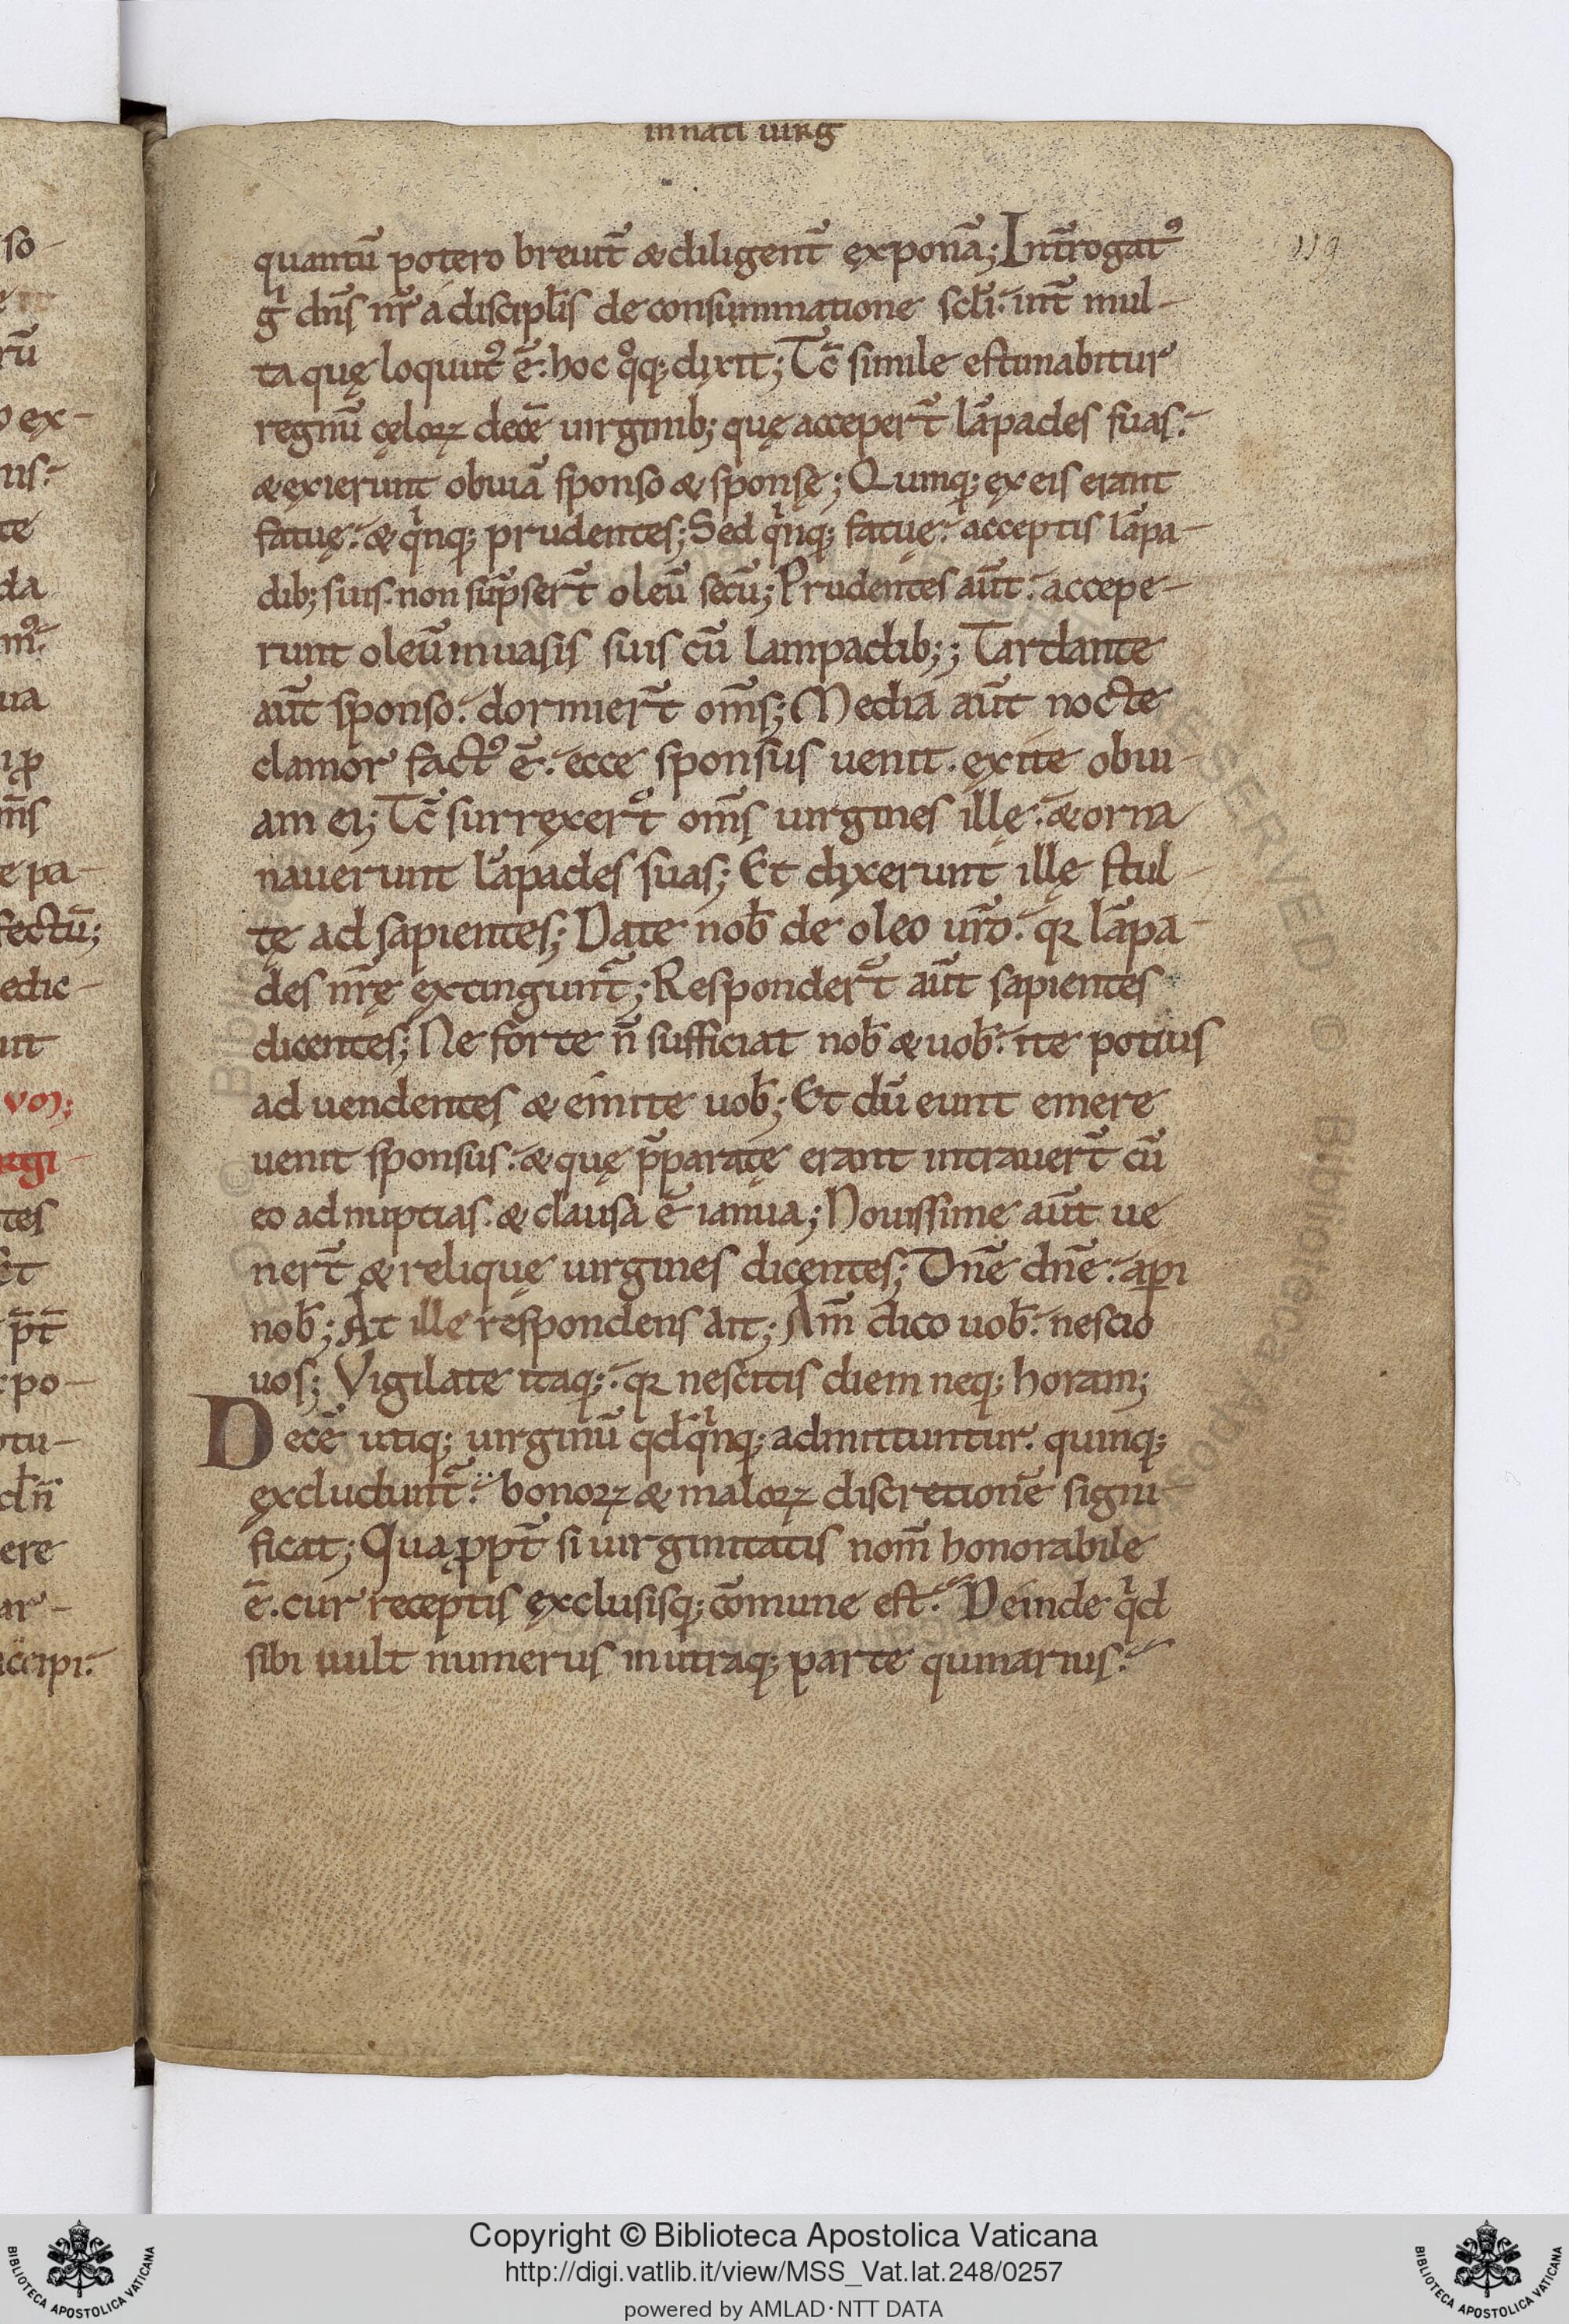 in nati uirg
119
quantū potero breuit̄ & diligent̄ exponā; Int̄rogat᷒
gͥ dn̄s nr̄ a discipl̄is de consummatione sc̄li. int̄ mul-
ta quę loquut᷒ ē. hoc qͦq; dixit; Tc̄ simile estimabitur
regnū cęloꝝ decē uirginib; quę accepert̄ lāpades suas.
& exierunt obuiā sponso & sponsę; Quinq; ex eis erant
fatuę. & qͥnq; prudentes; Sed qͥnq; fatuę. acceptis lāpa-
dib; suis. non sūpsert̄ oleū secū; Prudentes aūt. accepe-
runt oleū in uasis suis cū lampadib;; Tardante
aūt sponso. dormiert̄ om̄s; Media aūt nocte
clamor fact᷒ ē. ecce sponsus uenit. exite obui-
am ei; Tc̄ surrexert̄ om̄s uirgines illę. & orna
nauerunt lāpades suas; Et dixerunt illę stul-
tę ad sapientes; Date nob̄ de oleo ur̄o. qꝛ lāpa-
des nr̄ę extingunt̄; Respondert̄ aūt sapientes
dicentes; Ne forte n̄ sufficiat nob̄ & uob̄. ite potius
ad uendentes & emite uob̄; Et dū eunt emere
uenit sponsus. & quę p̄paratę erant intrauert̄ cū
eo ad nuptias. & clausa ē ianua; Nouissime aūt ue
nert̄ & relique uirgines dicentes; Dn̄e dn̄e. aperi
nob̄; At ille respondens ait; Am̄ dico uob̄. nescio
uos; Vigilate itaq;. qꝛ nescitis diem neq; horam;
Decē utiq; uirginū qd̄ qͥnq; admittuntur. quinq;
excludunt̄. bonoꝝ & maloꝝ discretionē signi-
ficat; Qua ꝓpt̄ si uirginitatis nom̄ honorabile
ē. cur receptis exclusisq; cōmune est. Deinde qͥd
sibi uult numerus in utraq; parte quinarius.
so-
rū
ex-
te
da
ua
om̄s
e pa-
fectū;
edic-
unt
uoɔ;
rgi-
tes
p̄t
po-
tu-
ere
ar-
accipi.
Copyright © Biblioteca Apostolica Vaticana
http://digi.vatlib.it/view/MSS_Vat.lat.248/0257
powered by AMLAD·NTT DATA
BIBLIOTECA APOSTOLICA VATICANA
BIBLIOTECA APOSTOLICA VATICANA